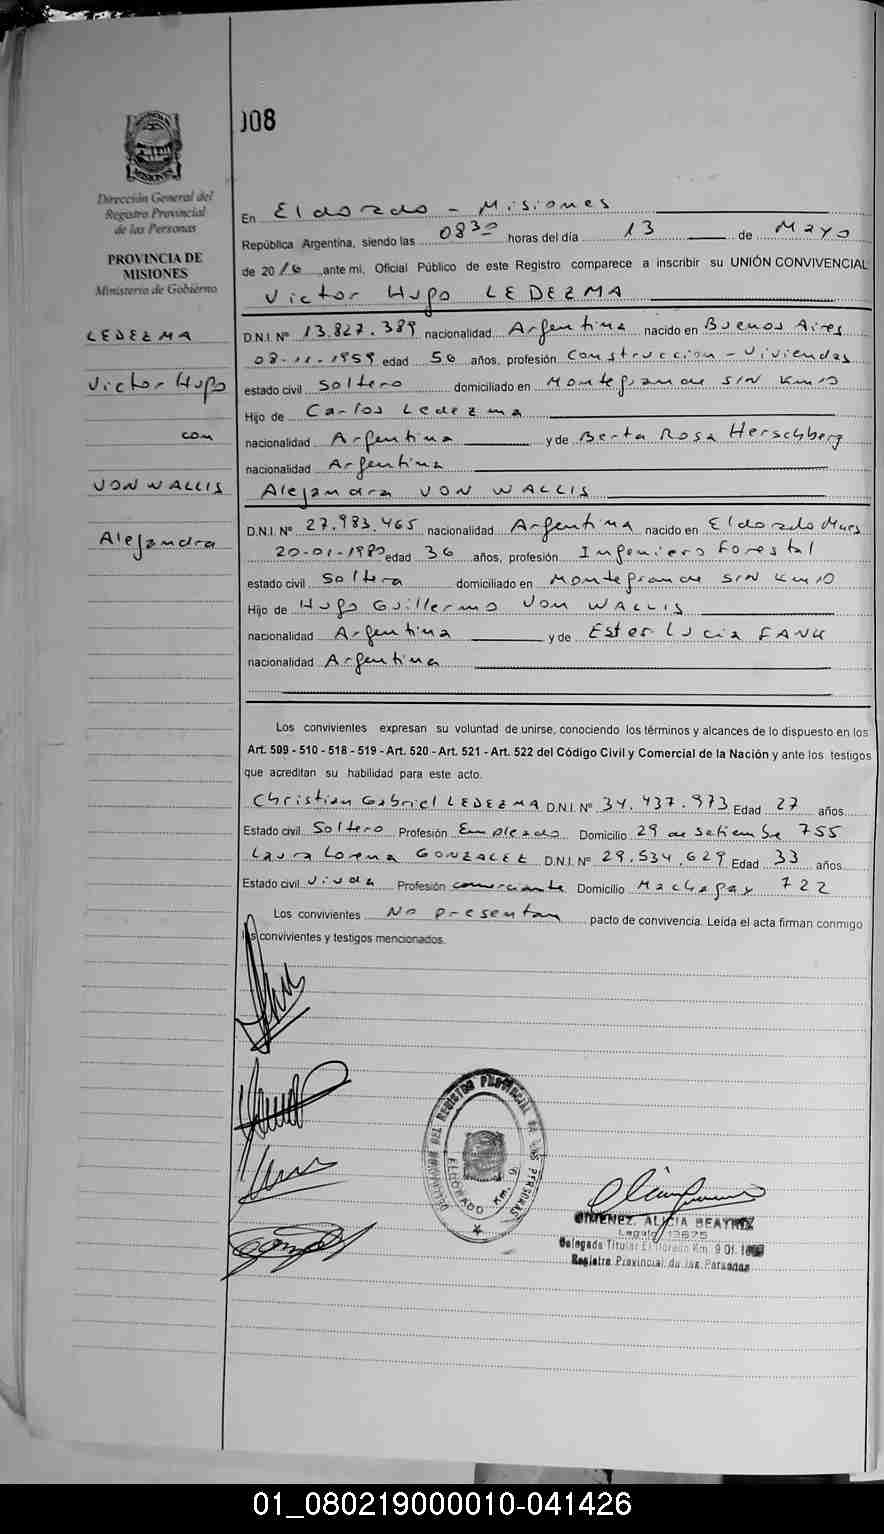 008
Dirección General del
Registro Provincial
de las Personas
PROVINCIA DE
MISIONES
Ministerio de Gobierno
LEDEZMA
Victor Hugo
con
VON WALLIS
Alejandra
En Eldorado - Misiones
República Argentina, siendo las 0830 horas del día 13 de Mayo
de 2016 ante mi, Oficial Público de este Registro comparece a inscribir su UNIÓN CONVIVENCIAL
Victor Hugo LEDEZMA
D.N.I. Nº 13.827.389 nacionalidad Argentina nacido en Buenos Aires
08-11-1959 edad 56 años, profesión Construccion - Viviendas
estado civil Soltero domiciliado en Montegrande S/N Km10
Hijo de Carlos Ledezma
nacionalidad Argentina y de Berta Rosa Herschberg
nacionalidad Argentina
Alejandra VON WALLIS
D.N.I. Nº 27.983.465 nacionalidad Argentina nacido en Eldorado Mnes
20-01-1980 edad 36 años, profesión Ingeniero Forestal
estado civil Soltera domiciliado en Montegrande S/N Km10
Hijo de Hugo Guillermo Von WALLIS
nacionalidad Argentina y de Ester Lucia FANK
nacionalidad Argentina
Los convivientes expresan su voluntad de unirse, conociendo los términos y alcances de lo dispuesto en los
Art. 509 - 510 - 518 - 519 - Art. 520 - Art. 521 - Art. 522 del Código Civil y Comercial de la Nación y ante los testigos
que acreditan su habilidad para este acto.
Christian Gabriel LEDEZMA D.N.I. Nº 34.437.973 Edad 27 años
Estado civil Soltero Profesión Empleado Domicilio 29 de Setiembre 755
Laura Lorena GONZALEZ D.N.I. Nº 29.534.629 Edad 33 años
Estado civil Viuda Profesión comerciante Domicilio Machagay 722
Los convivientes No presentan pacto de convivencia. Leída el acta firman conmigo
los convivientes y testigos mencionados.
DEL REGISTRO PROVINCIAL DE LAS PERSONAS
ELDORADO Km. 9
GIMENEZ, ALICIA BEATRIZ
Legajo 13675
Delegada Titular Eldorado Km. 9 Of.
Registro Provincial de las Personas
01_080219000010-041426